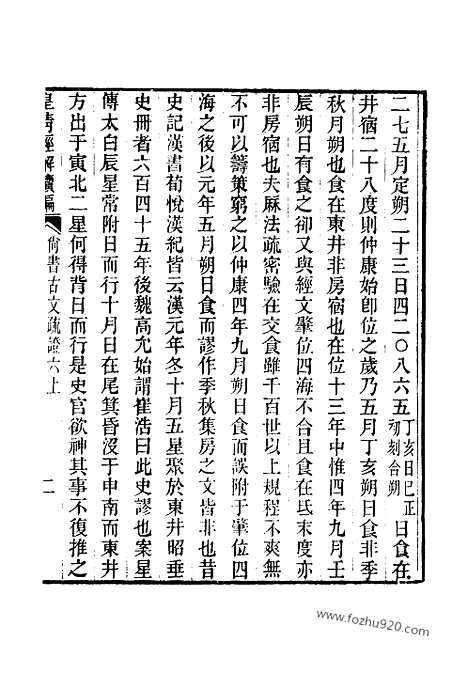 二七五月定朔二十三日四二〇八六五丁亥日巳正初刻合朔日食在
井宿二十八度則仲康始卽位之歲乃五月丁亥朔日食非季
秋月朔也食在東井非房宿也在位十三年中惟四年九月壬
辰朔日有食之卻又與經文肇位四海不合且食在氐末度亦
非房宿也夫厤法疏密驗在交食雖千百世以上規程不爽無
不可以籌策窮之以仲康四年九月朔日食而誤附于肇位四
海之後以元年五月朔日食而謬作季秋集房之文皆非也昔
史記漢書荀悅漢紀皆云漢元年冬十月五星聚於東井昭垂
史冊者六百四十五年後魏高允始謂崔浩曰此史謬也案星
傳太白辰星常附日而行十月日在尾箕昏沒于申南而東井
方出于寅北二星何得背日而行是史官欲神其事不復推之
皇淸經解續編
尙書古文疏證六上
二
www.fozhu920.com